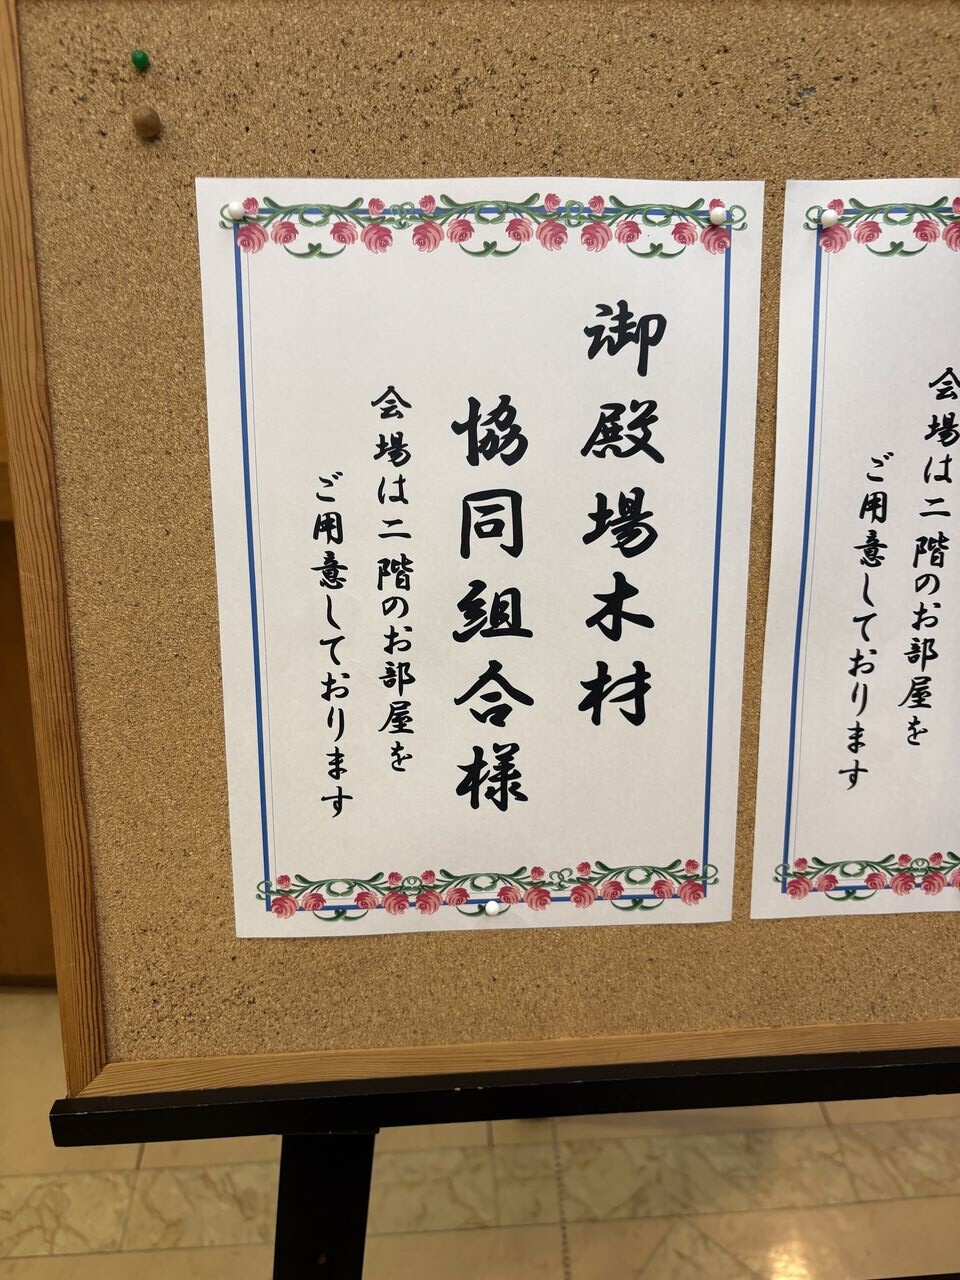 御殿場木材
協同組合様
会場は二階のお部屋を
ご用意しております
会場は二階のお部屋を
ご用意しております